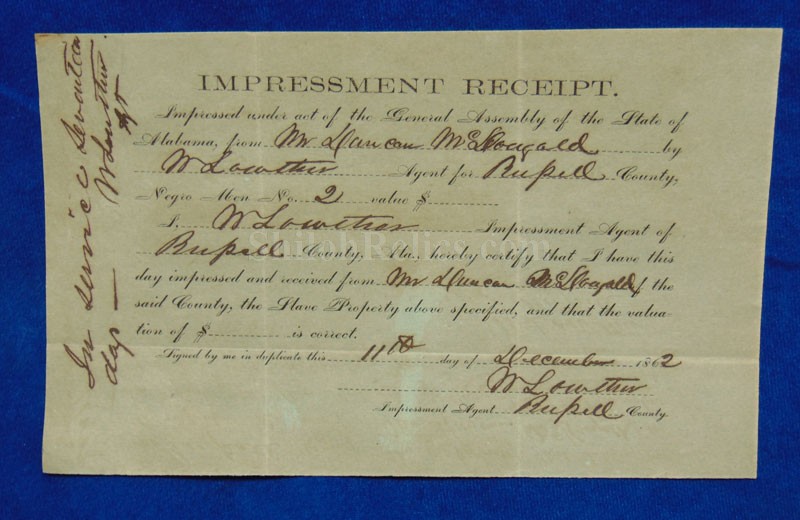 IMPRESSMENT RECEIPT.
Impressed under act of the General Assembly of the State of
Alabama, from Mr Duncan McDougald by
W Lowther Agent for Russell County,
Negro Men No. 2 value $
I, W Lowther Impressment Agent of
Russell County, Ala., hereby certify that I have this
day impressed and received from Mr Duncan McDougald of the
said County, the Slave Property above specified, and that the valua-
tion of $ is correct.
Signed by me in duplicate this 11th day of December 1862
W Lowther
Impressment Agent Russell County.
In service seventeen
days — W Lowther
Agt
ShilohRelics.com